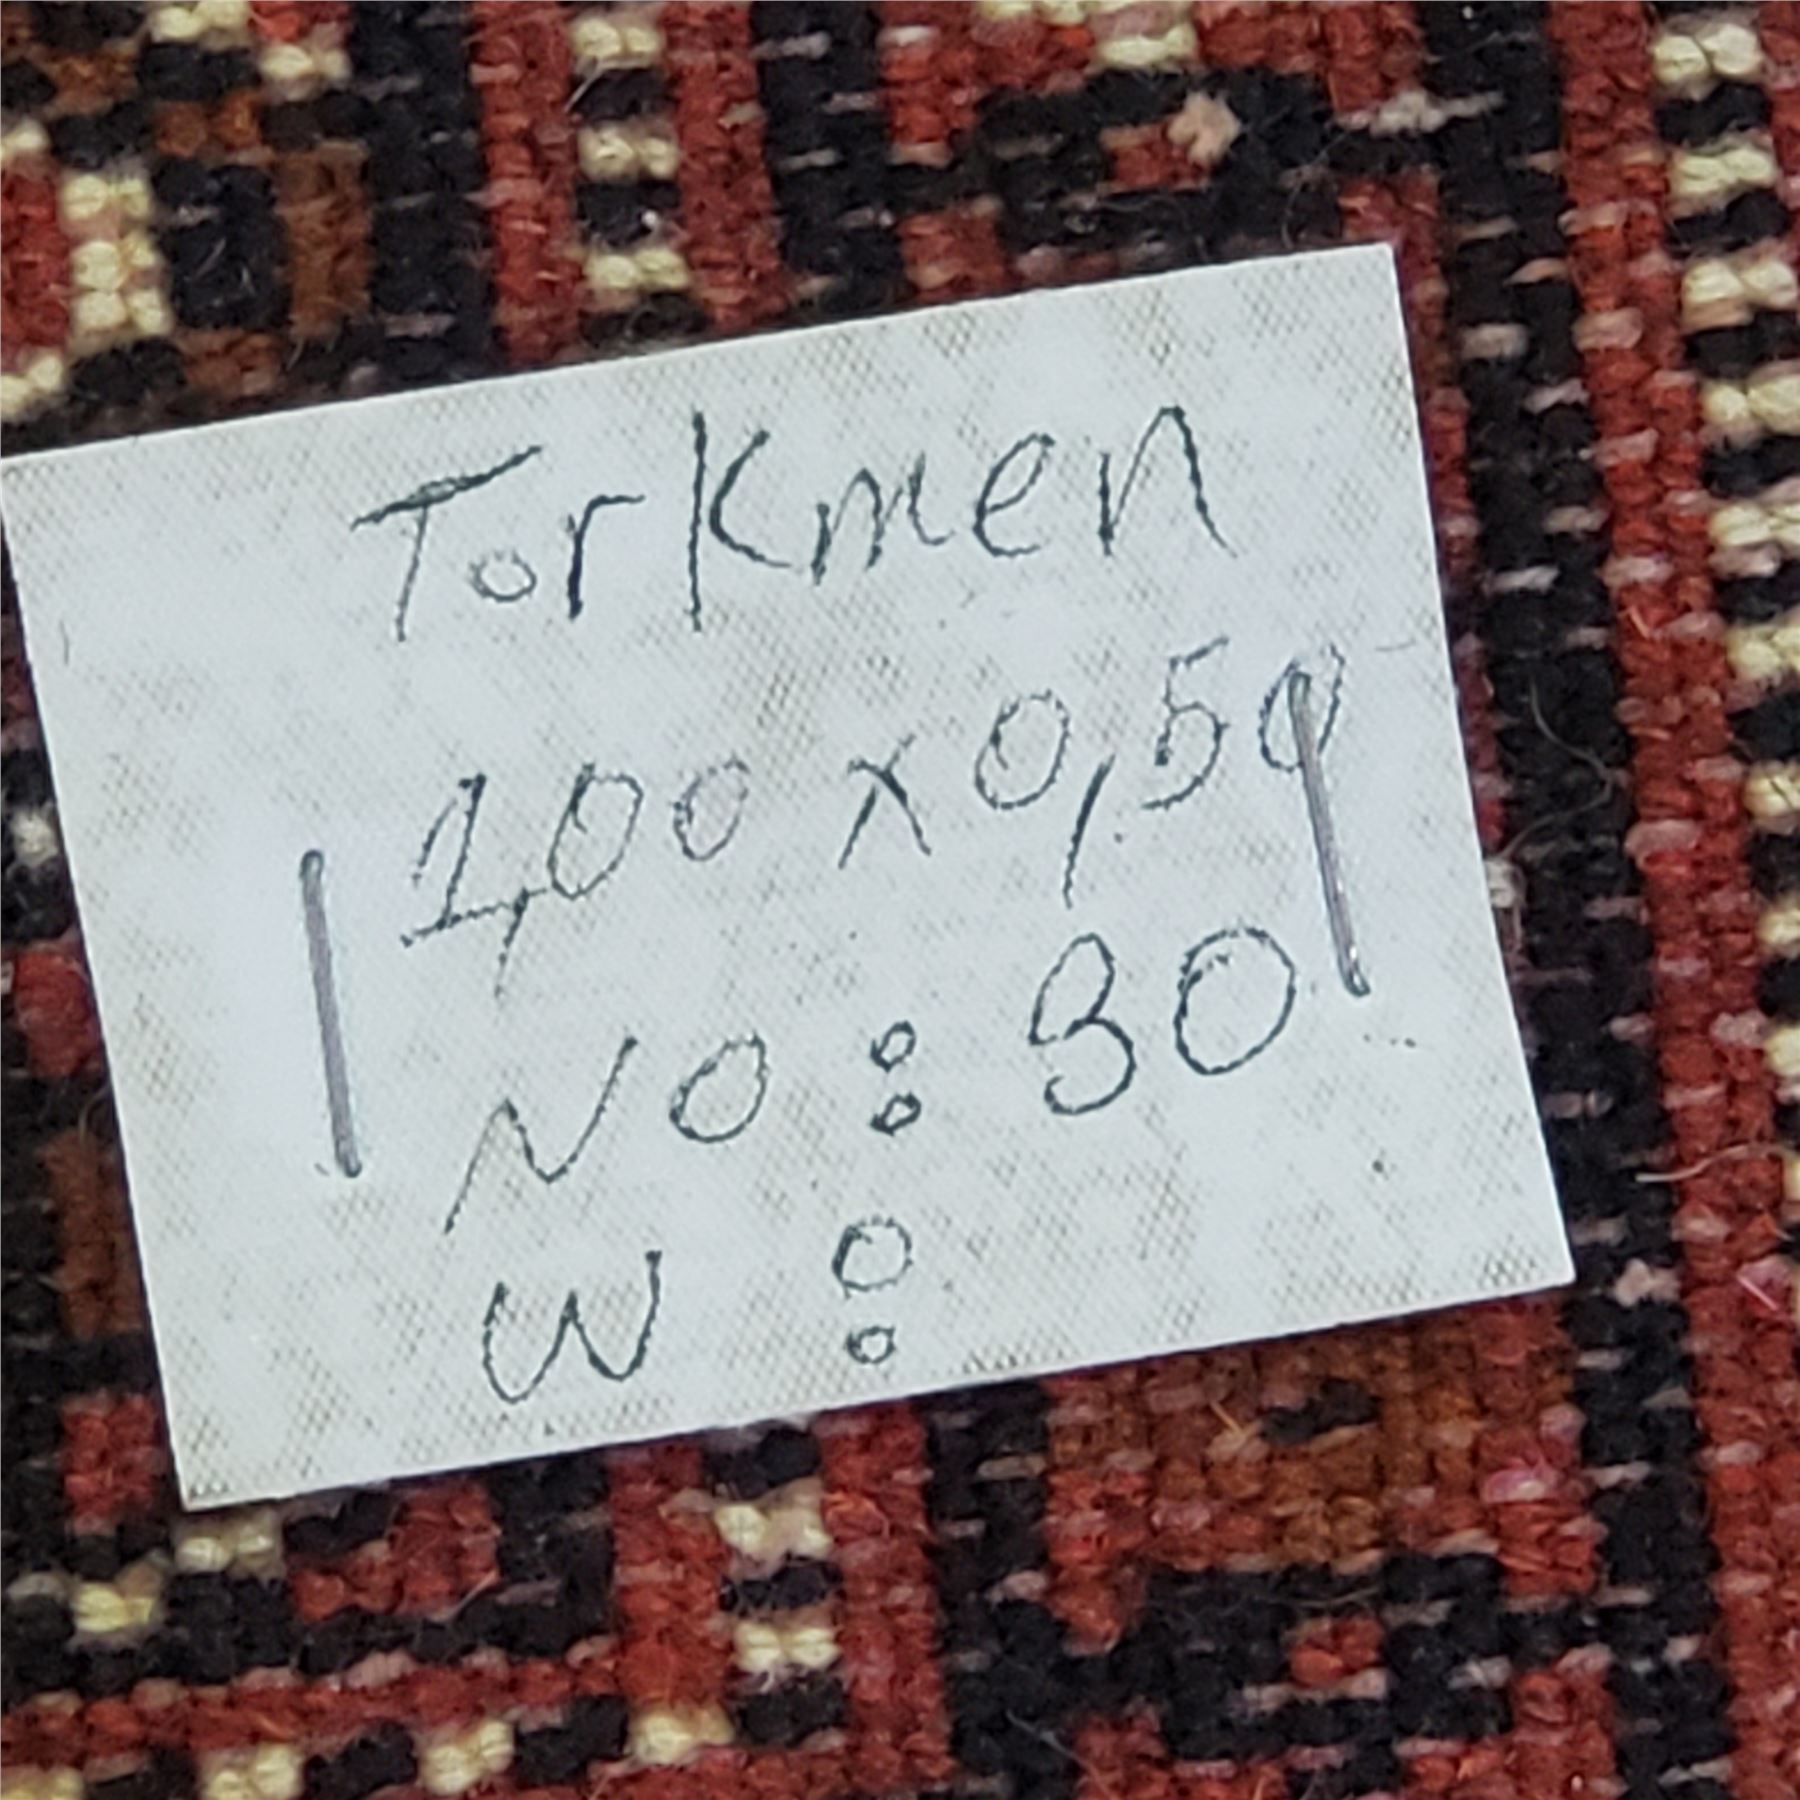 Torkmen
1,00 x 0,50
NO : 90
W :